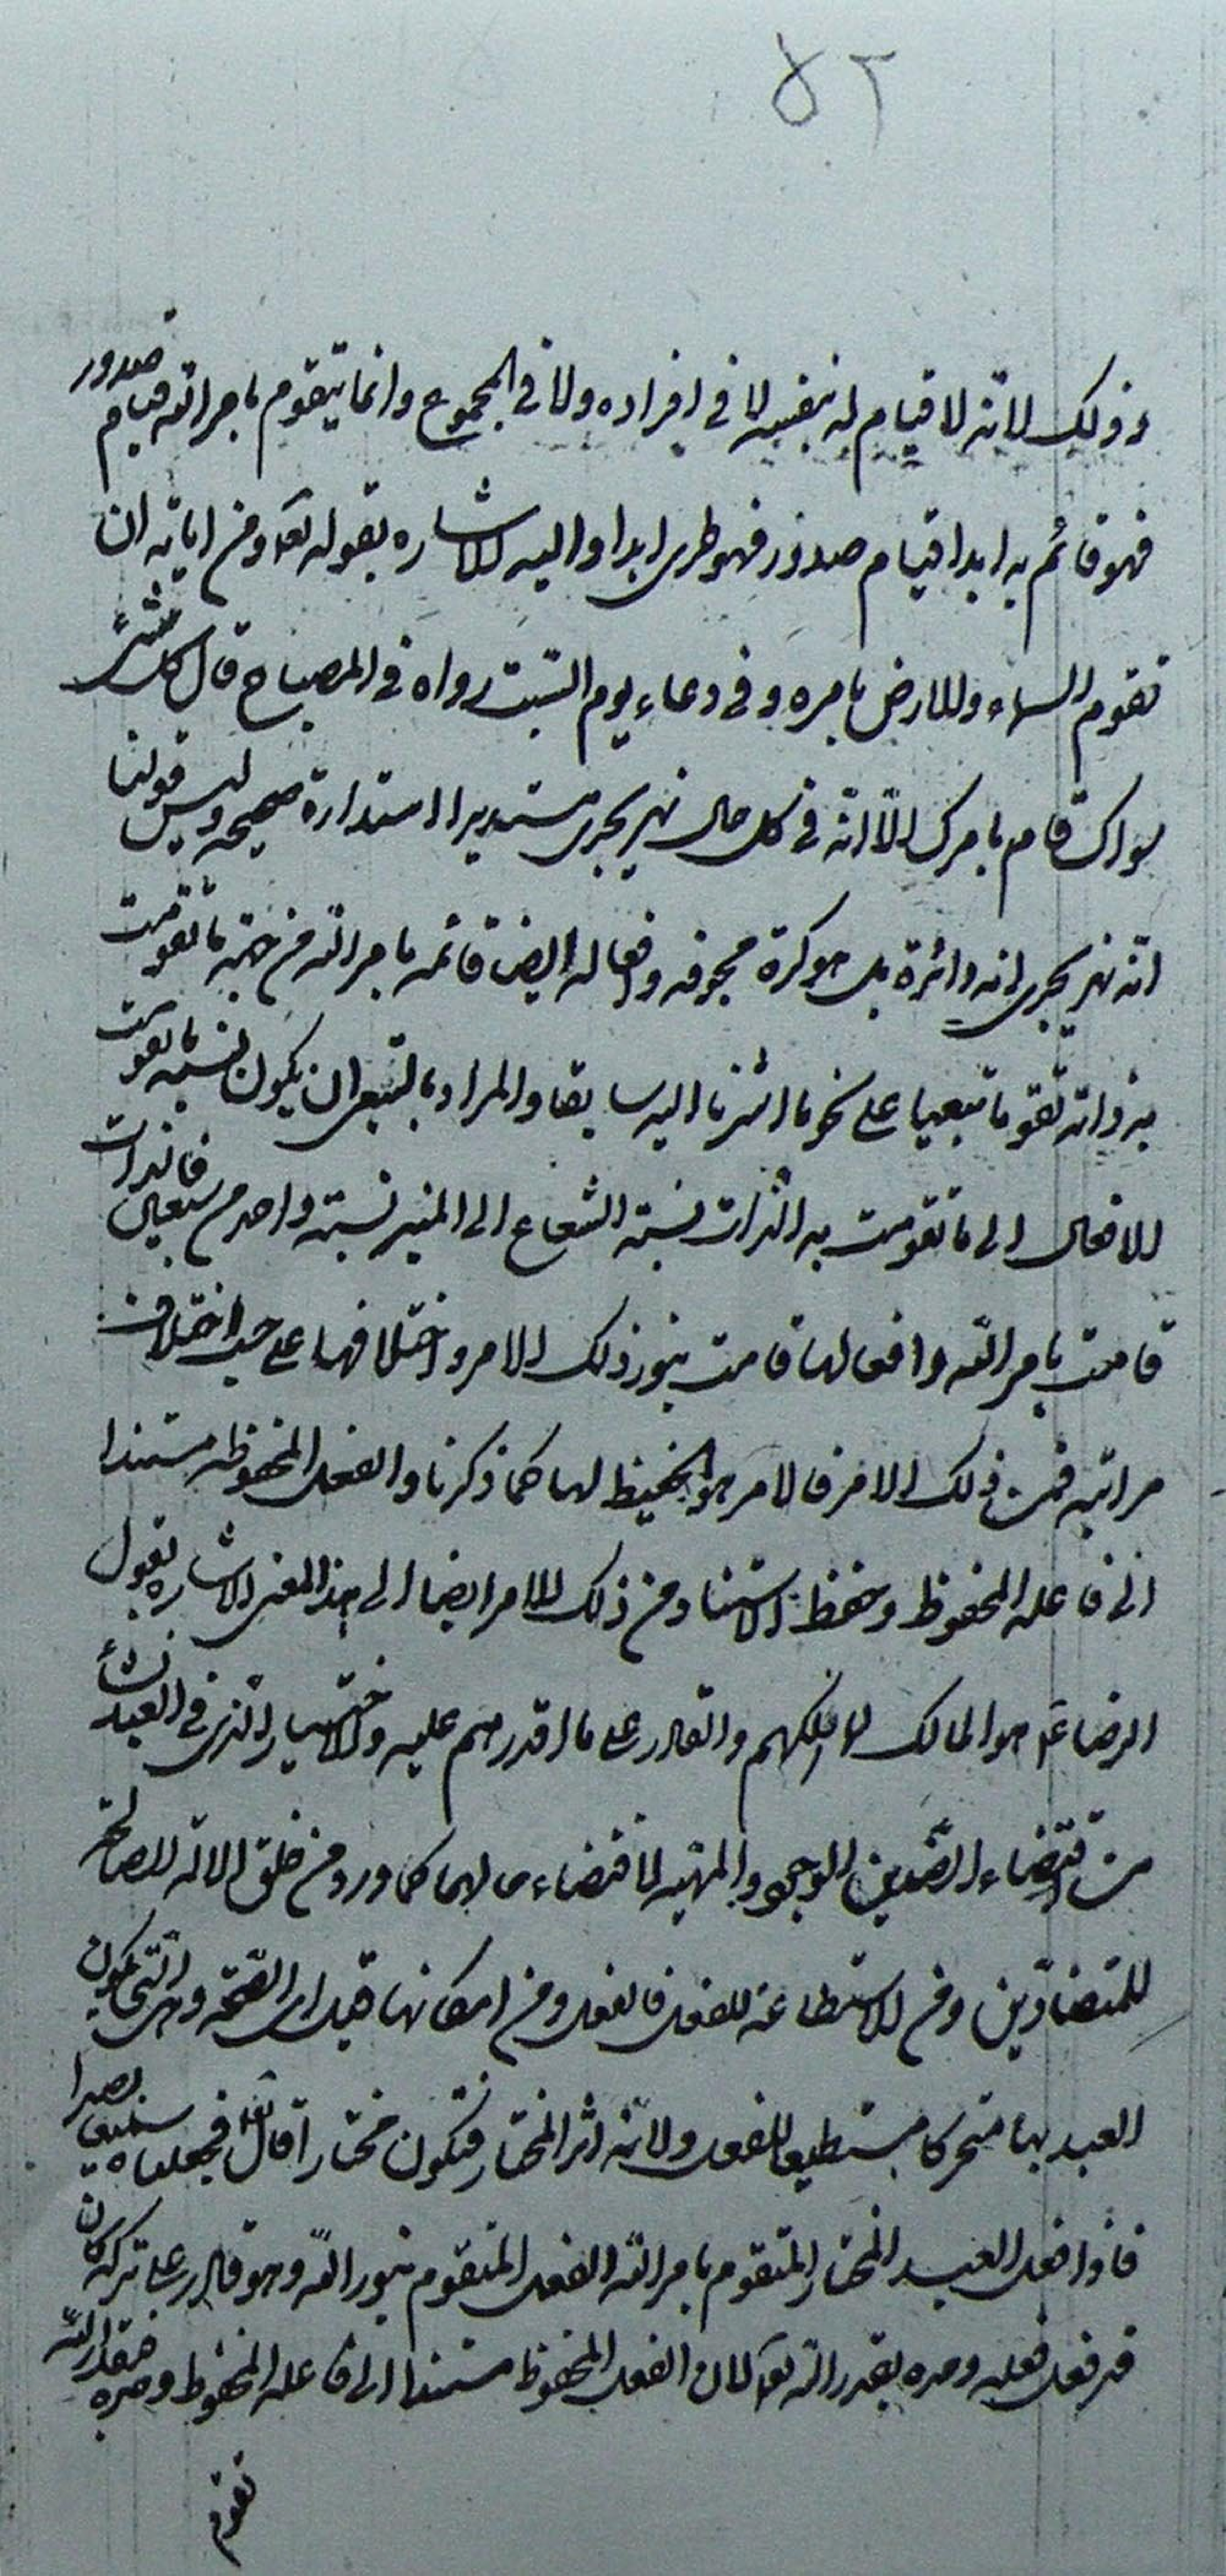 ٥٢
وذلك لانه لا قيام له بنفسه لا في افراده ولا في المجموع وانما يتقوم بامر الله قيام صدور
فهو قائم به ابدا قيام صدور فهو طري ابدا واليه الاشاره بقوله تعا ومن اياته ان
تقوم السماء والارض بامره وفي دعاء يوم السبت رواه في المصباح قال كل شئ
سواك قام بامرك الا انه في كل حال نهر يجري مستديرا استدارة صحيحه وليس قولنا
انه نهر يجري انه دائرة بل هو كرة مجوفه وافعاله ايضا قائمه بامر الله من حيث ما تقومت
به ذاته تقوما تبعيا على نحو ما اشرنا اليه سابقا والمراد بالتبعي ان يكون نسبة ما تقومت
الافعال الى ما تقومت به الذرات نسبة الشعاع الى المنير نسبة واحد من سبعين فالذرات
قامت بامر الله وافعالها قامت بنور ذلك الامر واختلافها على حسب اختلاف
مراتبه فمن ذلك الامر فالامر هو الحفيظ لها كما ذكرنا والفعل المحفوظ مستندا
الى فاعله المحفوظ وحفظ الاستناد من ذلك الامر ايضا الى هذا المعنى الاشاره بقول
الرضا ع هو المالك لما ملكهم والقادر على ما اقدرهم عليه والاختيار الذي في العبد نشأ
من اقتضاء الضدين الوجود والمهية لاقتضاء ما لهما كما ورد من خلق الاله الصالحة
للمتضادين ومن الاستطاعة للفعل فالفعل ومن امكانها قبل اي الصحة وهي التي يكون
العبد بها متحركا مستطيعا للفعل ولانه اثر المختار فيكون مختارا قال تعا فجعلناه سميعا بصيرا
فاذا فعل العبد المختار المتقوم بامر الله الفعل المتقوم بنور الله وهو قادر على تركه كان
قد فعل فعله وحده بقدر الله تعا لان الفعل المحفوظ مستندا الى فاعله المحفوظ وحده فبقدر الله
تقوم